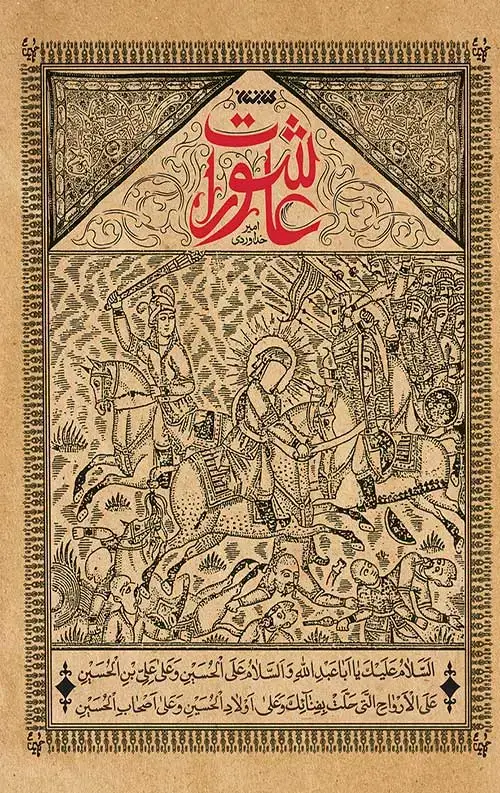 عاشورات
امیر
خداوردی
السَّلامُ عَلَيْكَ يا اَبا عَبدِ اللهِ وَ السَّلامُ عَلَى الحُسَيْنِ وَ عَلى عَلِيِّ بنِ الحُسَيْنِ
عَلَى الأَرْواحِ الَّتي حَلَّتْ بِفِنائِكَ وَ عَلى اَولادِ الحُسَيْنِ وَ عَلى اَصحابِ الحُسَيْنِ